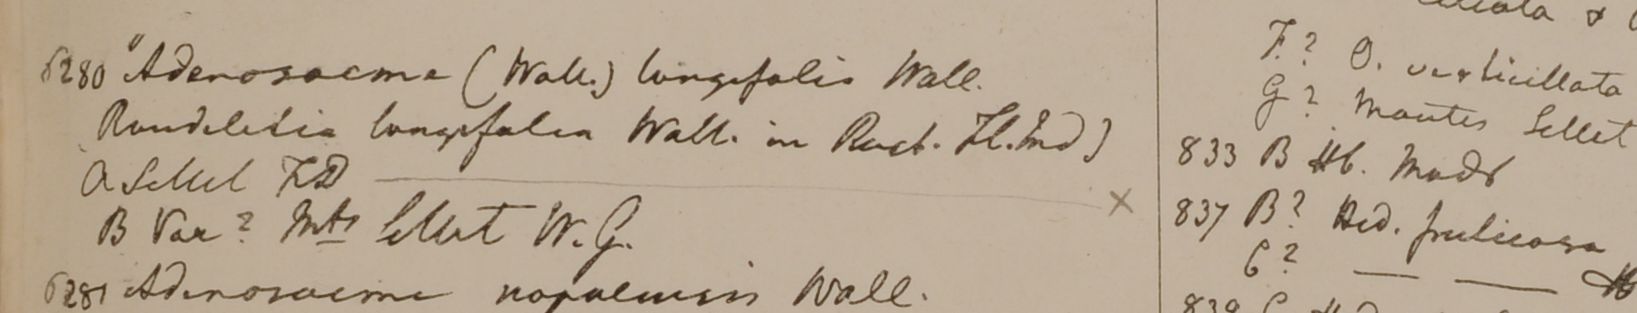 6280 "Adenosacme (Wall.) longifolia Wall.
Rondeletia longifolia Wall. in Roxb. Fl. Ind)
A Sillet F.D
B Var? Mts Sillet W.G.
6281 Adenosacme nopalensis Wall.
F? O. verticillata
G? Montes Sillet
833 B Hb. Madr
837 B? Hed. fruticosa
C? — —
839 C